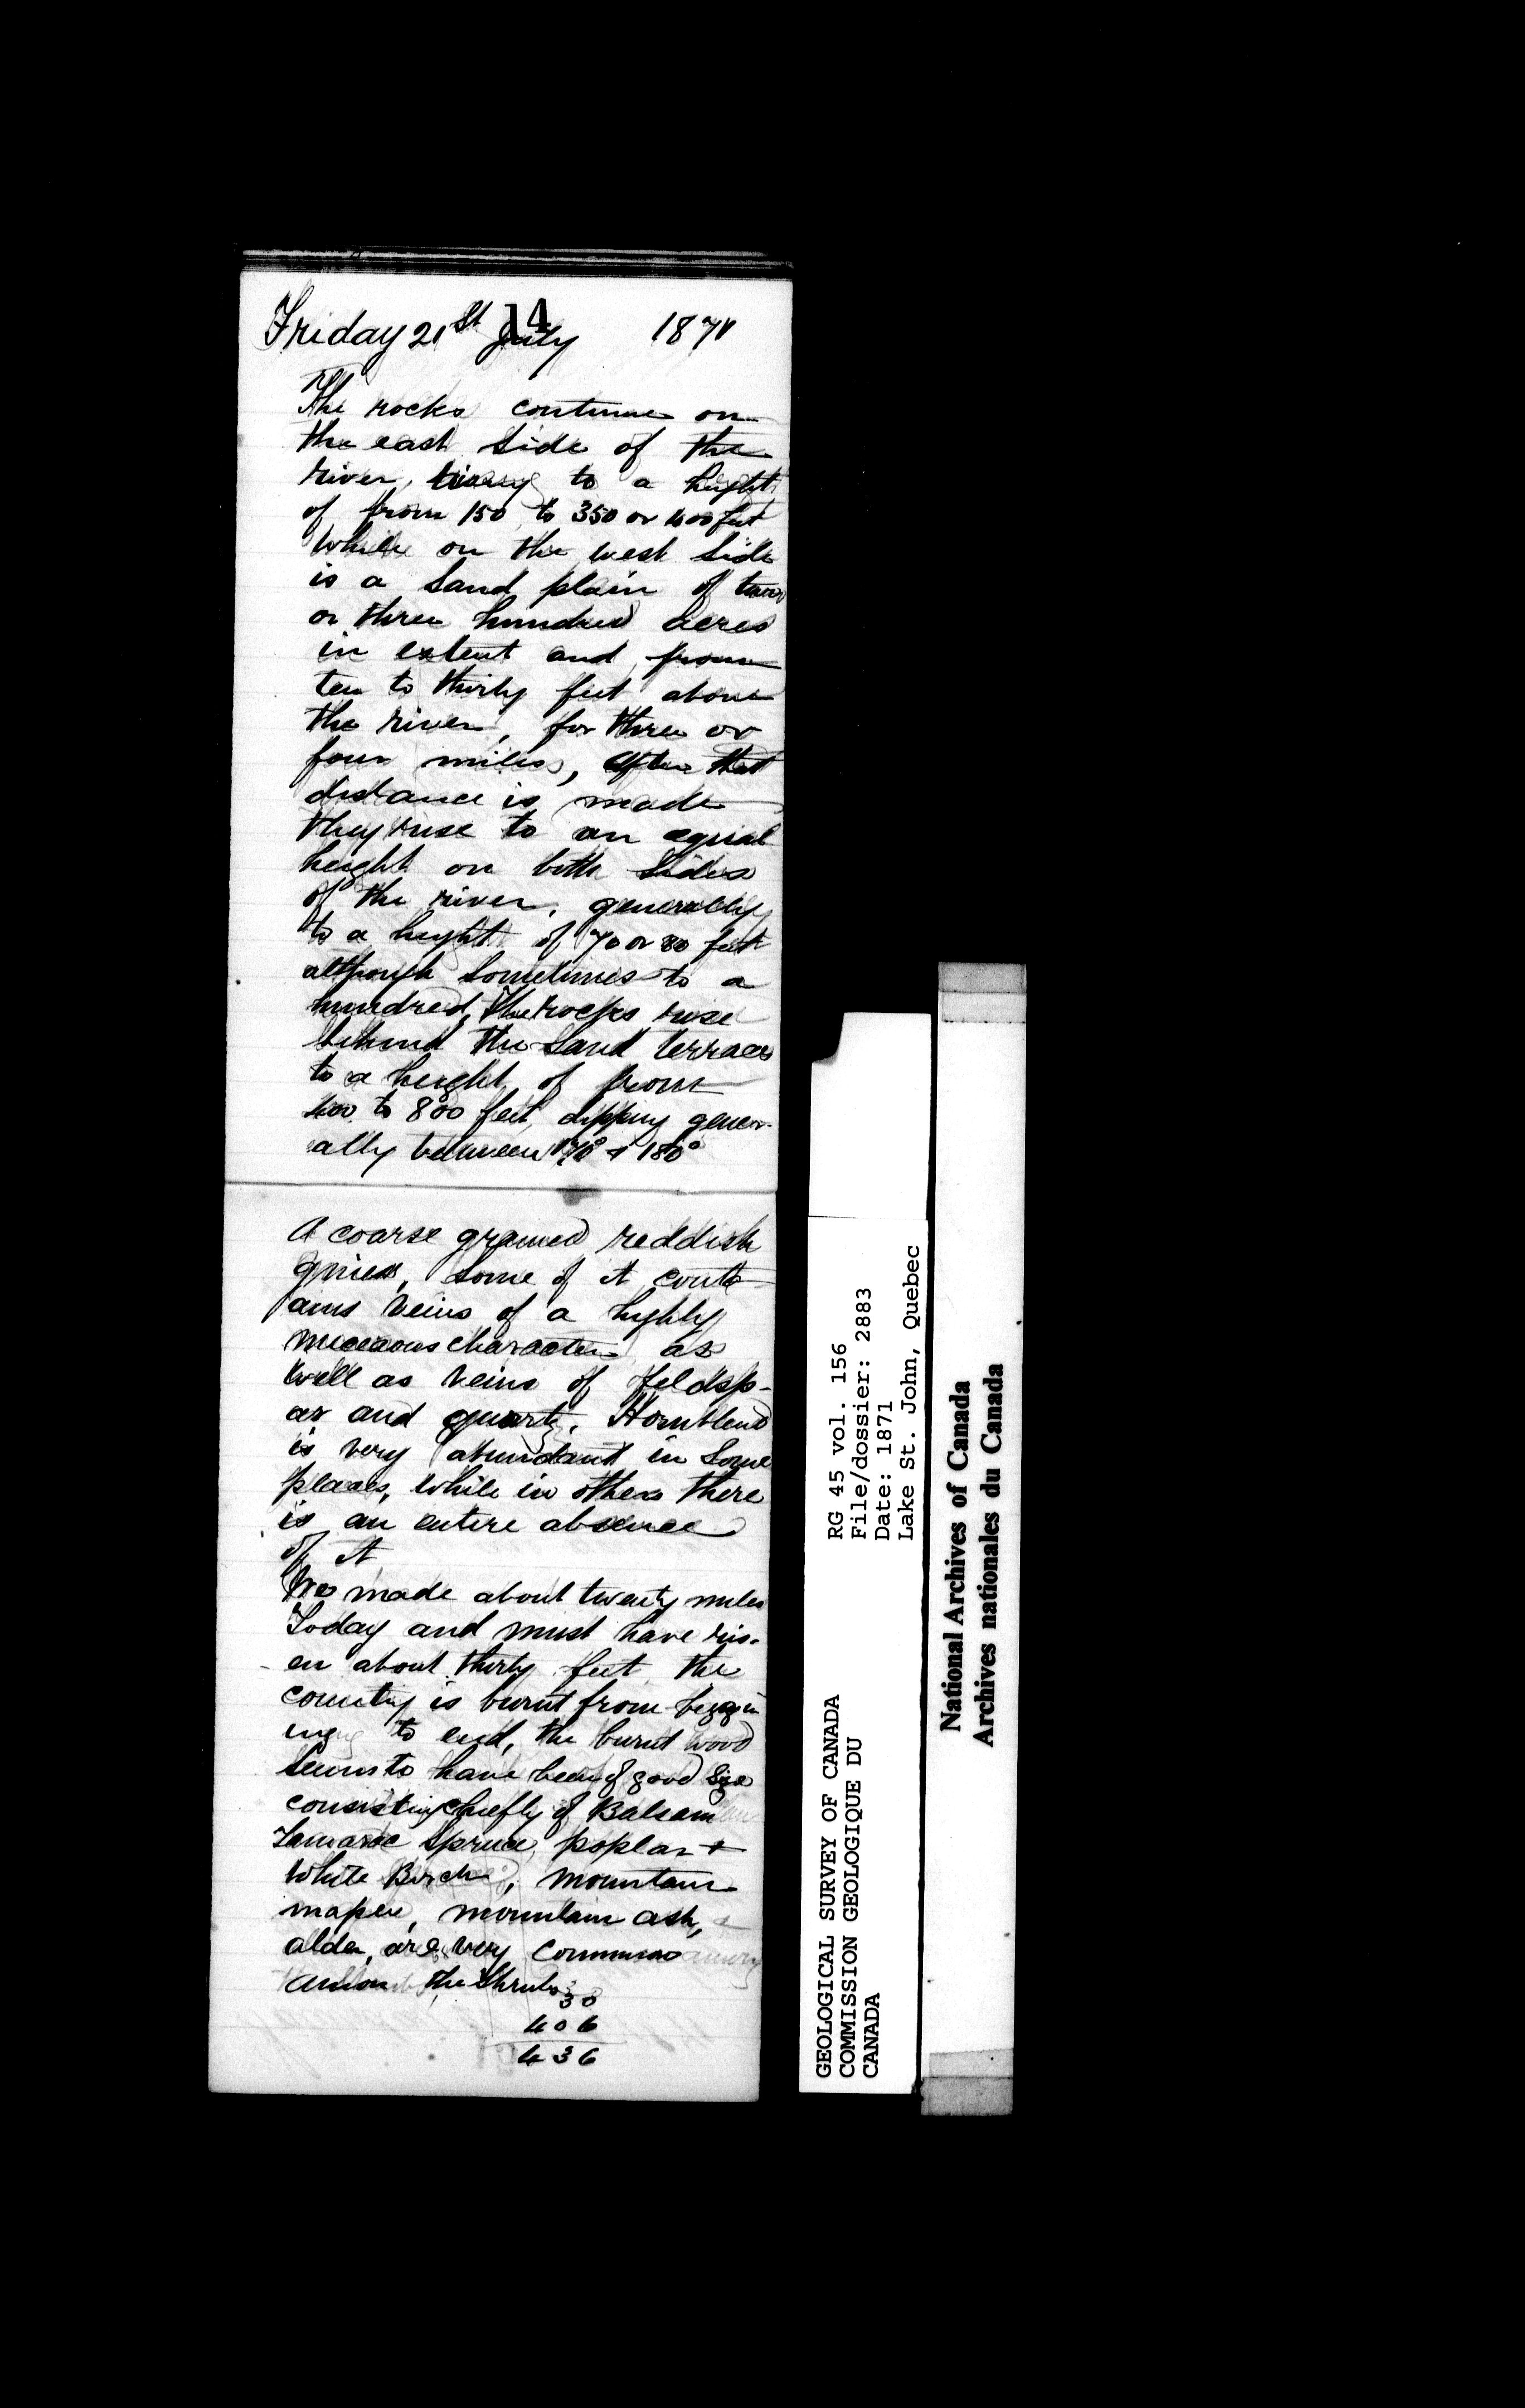 14
Friday 21st July 1871
The rocks continue on
the east side of the
river, rising to a hight
of from 150 to 350 or 400 feet
while on the west side
is a sand plain of two
or three hundred acres
in extent and from
ten to thirty feet above
the river, for three or
four miles, after that
distance is made
they rise to an equal
height on both sides
of the river, generally
to a hight of 70 or 80 feet
although sometimes to a
hundred, The rocks rise
behind the sand terraces
to a height of from
400 to 800 feet, dipping gener-
ally between 170° & 180°
A coarse grained reddish
gniess, some of it cont-
ains veins of a highly
micaceous character as
well as veins of feldsp-
ar and quartz, Hornblend
is very abundant in some
places, while in others there
is an entire absence
of it
We made about twenty miles
Today and must have ris-
en about thirty feet, the
country is burnt from beggin
ing to end, the burnt wood
seems to have been of good size
consisting chiefly of Balsam
Tamarac Spruce, poplar +
White Birch, mountain
maple, mountain ash,
alder, are very common
the shrubs
30
406
436
GEOLOGICAL SURVEY OF CANADA
COMMISSION GEOLOGIQUE DU
CANADA
RG 45 vol. 156
File/dossier: 2883
Date: 1871
Lake St. John, Quebec
National Archives of Canada
Archives nationales du Canada